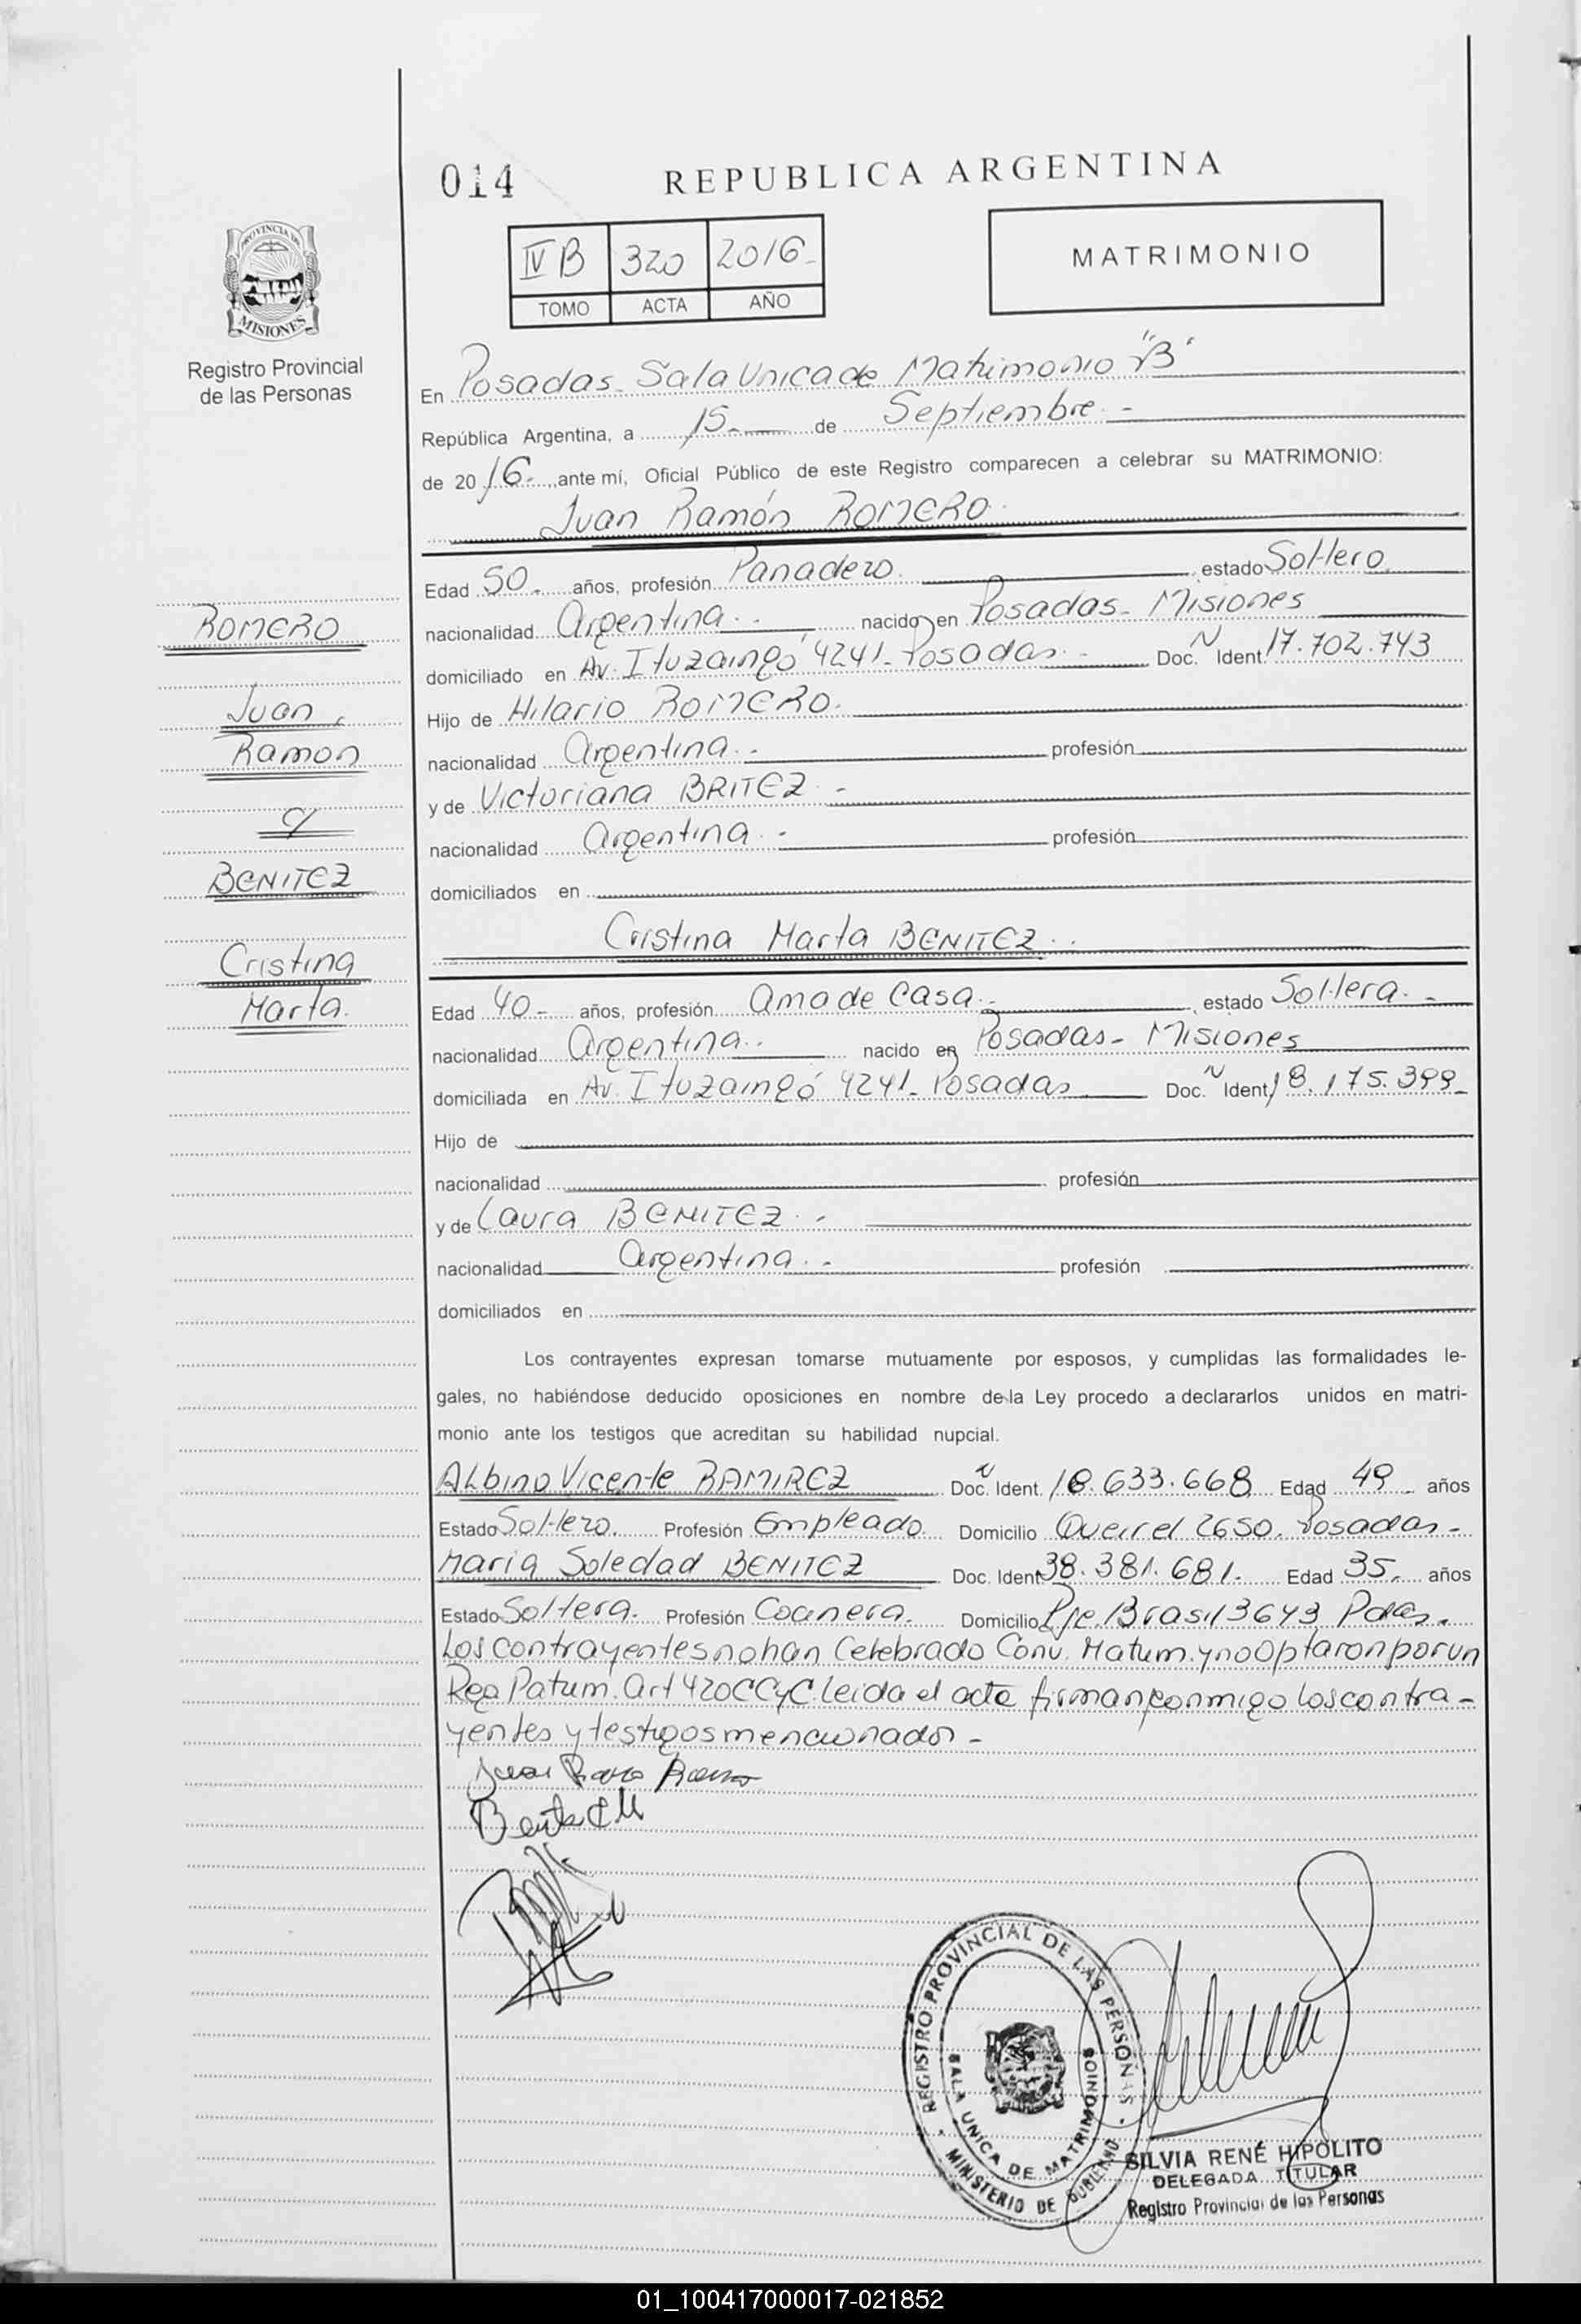 014
REPUBLICA ARGENTINA
IV B 320 2016
TOMO ACTA AÑO
MATRIMONIO
PROVINCIA DE
MISIONES
Registro Provincial
de las Personas
En Posadas - Sala Unica de Matrimonio "B"
República Argentina, a 15 - de Septiembre. -
de 2016 -, ante mí, Oficial Público de este Registro comparecen a celebrar su MATRIMONIO:
Juan Ramón ROMERO.
Edad 50 - años, profesión Panadero. estado Soltero.
nacionalidad Argentina. - nacido en Posadas - Misiones
domiciliado en Av. Ituzaingó 4241 - Posadas. - Doc. N Ident. 17.702.743
Hijo de Hilario ROMERO.
nacionalidad Argentina. - profesión
y de Victoriana BRITEZ. -
nacionalidad Argentina. - profesión
domiciliados en
ROMERO
Juan
Ramon
c/
BENITEZ
Cristina
Marta.
Cristina Marta BENITEZ. .
Edad 40 - años, profesión Ama de Casa. - estado Soltera. -
nacionalidad Argentina. . nacido en Posadas - Misiones
domiciliada en Av. Ituzaingó 4241 - Posadas Doc. N Ident. 18.175.399 -
Hijo de
nacionalidad profesión
y de Laura BENITEZ. -
nacionalidad Argentina. - profesión
domiciliados en
Los contrayentes expresan tomarse mutuamente por esposos, y cumplidas las formalidades le-
gales, no habiéndose deducido oposiciones en nombre de la Ley procedo a declararlos unidos en matri-
monio ante los testigos que acreditan su habilidad nupcial.
Albino Vicente RAMIREZ Doc. N Ident. 18.633.668 Edad 49 años
Estado Soltero. Profesión Empleado. Domicilio Queirel 2650. Posadas -
Maria Soledad BENITEZ Doc. Ident 38.381.681. Edad 35 años
Estado Soltera. Profesión Cocinera. Domicilio Pje. Brasil 3643 Pdas.
Los contrayentes no han Celebrado Conv. Matrim. y no Optaron por un
Reg Patrim. Art 420 CCyC leida el acta firman conmigo los contra-
yentes y testigos mencionados -
REGISTRO PROVINCIAL DE LAS PERSONAS
SALA UNICA DE MATRIMONIOS
MINISTERIO DE GOBIERNO
SILVIA RENÉ HIPOLITO
DELEGADA TITULAR
Registro Provincial de las Personas
01_100417000017-021852